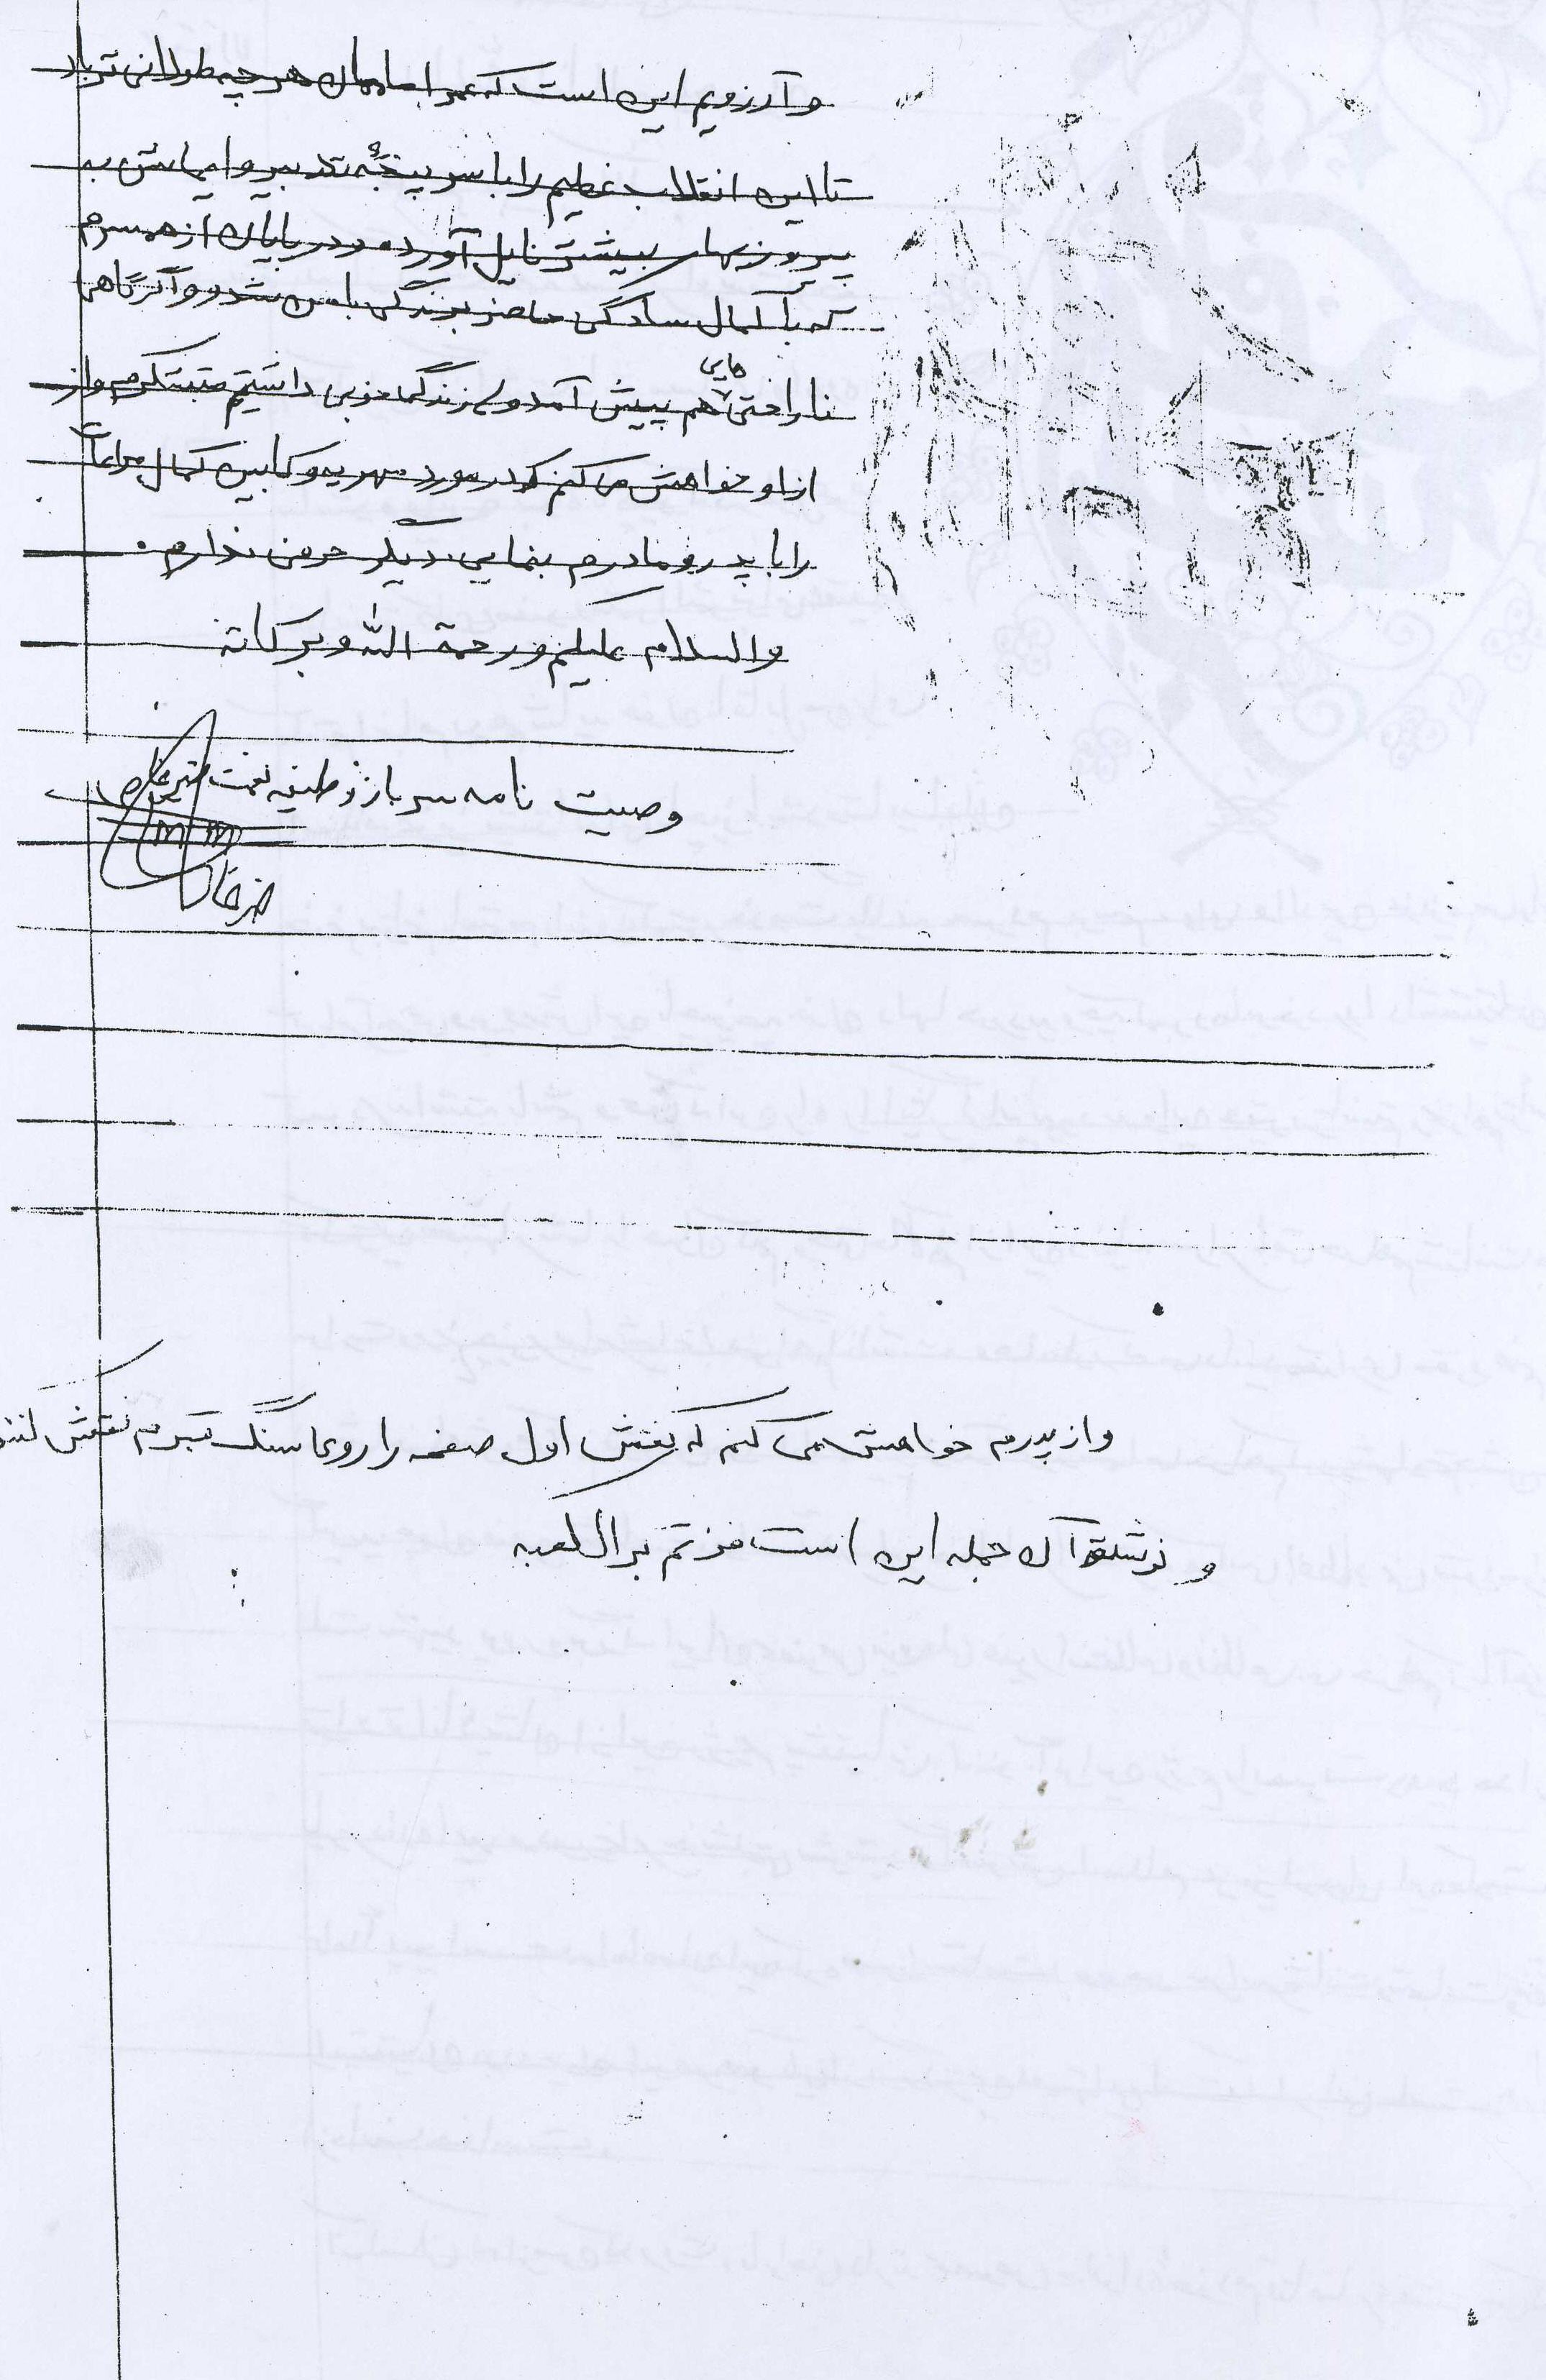 و آرزویم این است که عمر امامان هر چه طولانی تر باد
تا این انقلاب عظیم را با سر پنجهٔ تدبیر و ایمانش به
پیروزیهای بیشتر نایل آورده و در پایان از همسرم
که با کمال سادگی حاضر بزندگی با من شد و و اگر گاهی
ناراحتی هایی هم پیش آمد ولی زندگی خوبی داشتیم متشکرم و از
از او خواهش می کنم که در مورد مهریه و کابین کمال مراعات
را با پدر و مادرم بنمایی دیگر حرفی ندارم .
والسلام علیکم و رحمة الله و برکاته
وصیت نامه سرباز وظیفه نعمت
و از پدرم خواهش می کنم که نقش اول صفحه را روی سنگ قبرم نقش کنند
و نوشته آن جمله این است فزتم برب الکعبه